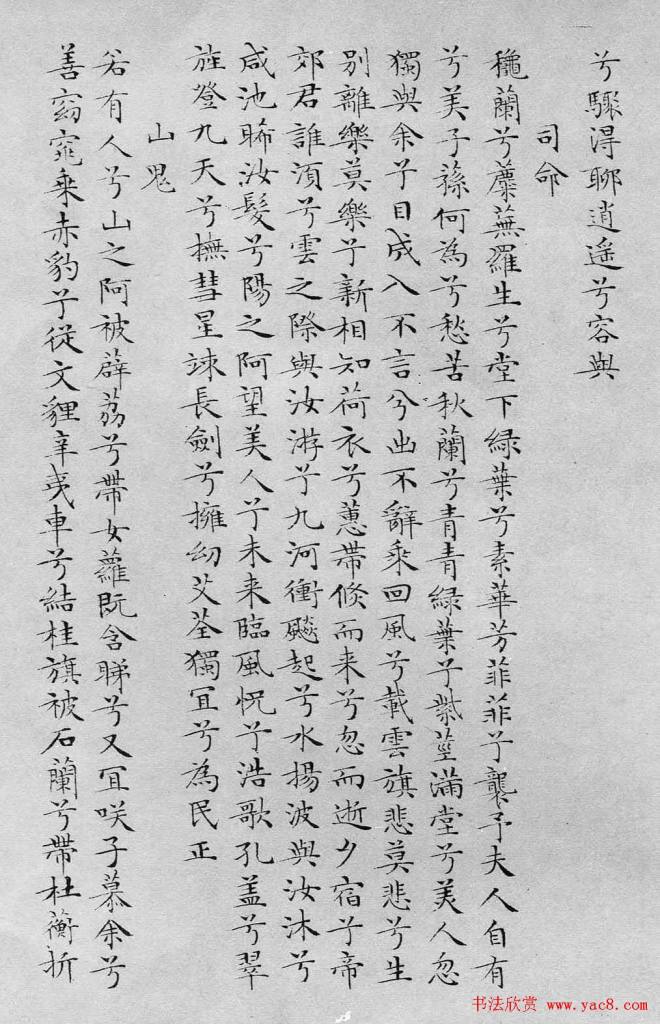 兮驟得聊逍遙兮容與
司命
穐蘭兮麋蕪羅生兮堂下綠葉兮素華芳菲菲兮襲予夫人自有
兮美子蓀何為兮愁苦秋蘭兮青青綠葉兮紫莖滿堂兮美人忽
獨與余兮目成入不言兮出不辭乘回風兮載雲旗悲莫悲兮生
別離樂莫樂兮新相知荷衣兮蕙帶倏而来兮忽而逝夕宿兮帝
郊君誰須兮雲之際與汝游兮九河衝飈起兮水揚波與汝沐兮
咸池晞汝髮兮陽之阿望美人兮未来臨風怳兮浩歌孔盖兮翠
旌登九天兮撫彗星竦長劍兮擁幼艾荃獨冝兮為民正
山鬼
若有人兮山之阿被薜荔兮帶女蘿既含睇兮又冝咲子慕余兮
善窈窕乘赤豹兮從文貍辛夷車兮結桂旗被石蘭兮帶杜蘅折
书法欣赏 www.yac8.com